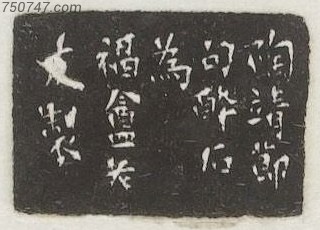 750747.com
陶靖節
句醉石
為
福盦老
友製